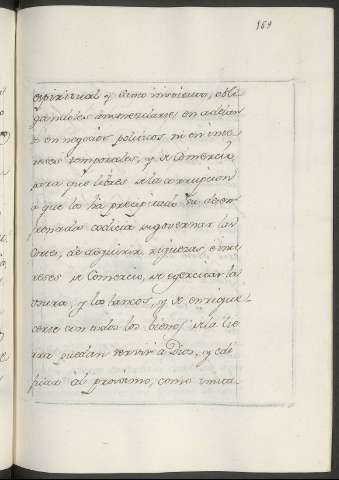 169
espiritual y como inspirar, obli
gandoles à no mezclarse en adelan
te en negocios politicos, ni en inte
reses temporales, y de Comercio,
para que libres de la corrupcion
à que los ha precipitado su desen
frenada codicia de governar las
Cortes, de adquirir riquezas, è inte
reses de Comercio, de egercitar la
usura, y los bancos, y de enrique
cerse con todos los bienes de la tie
rra puedan servir à Dios, y edi
ficar al proximo, como imita